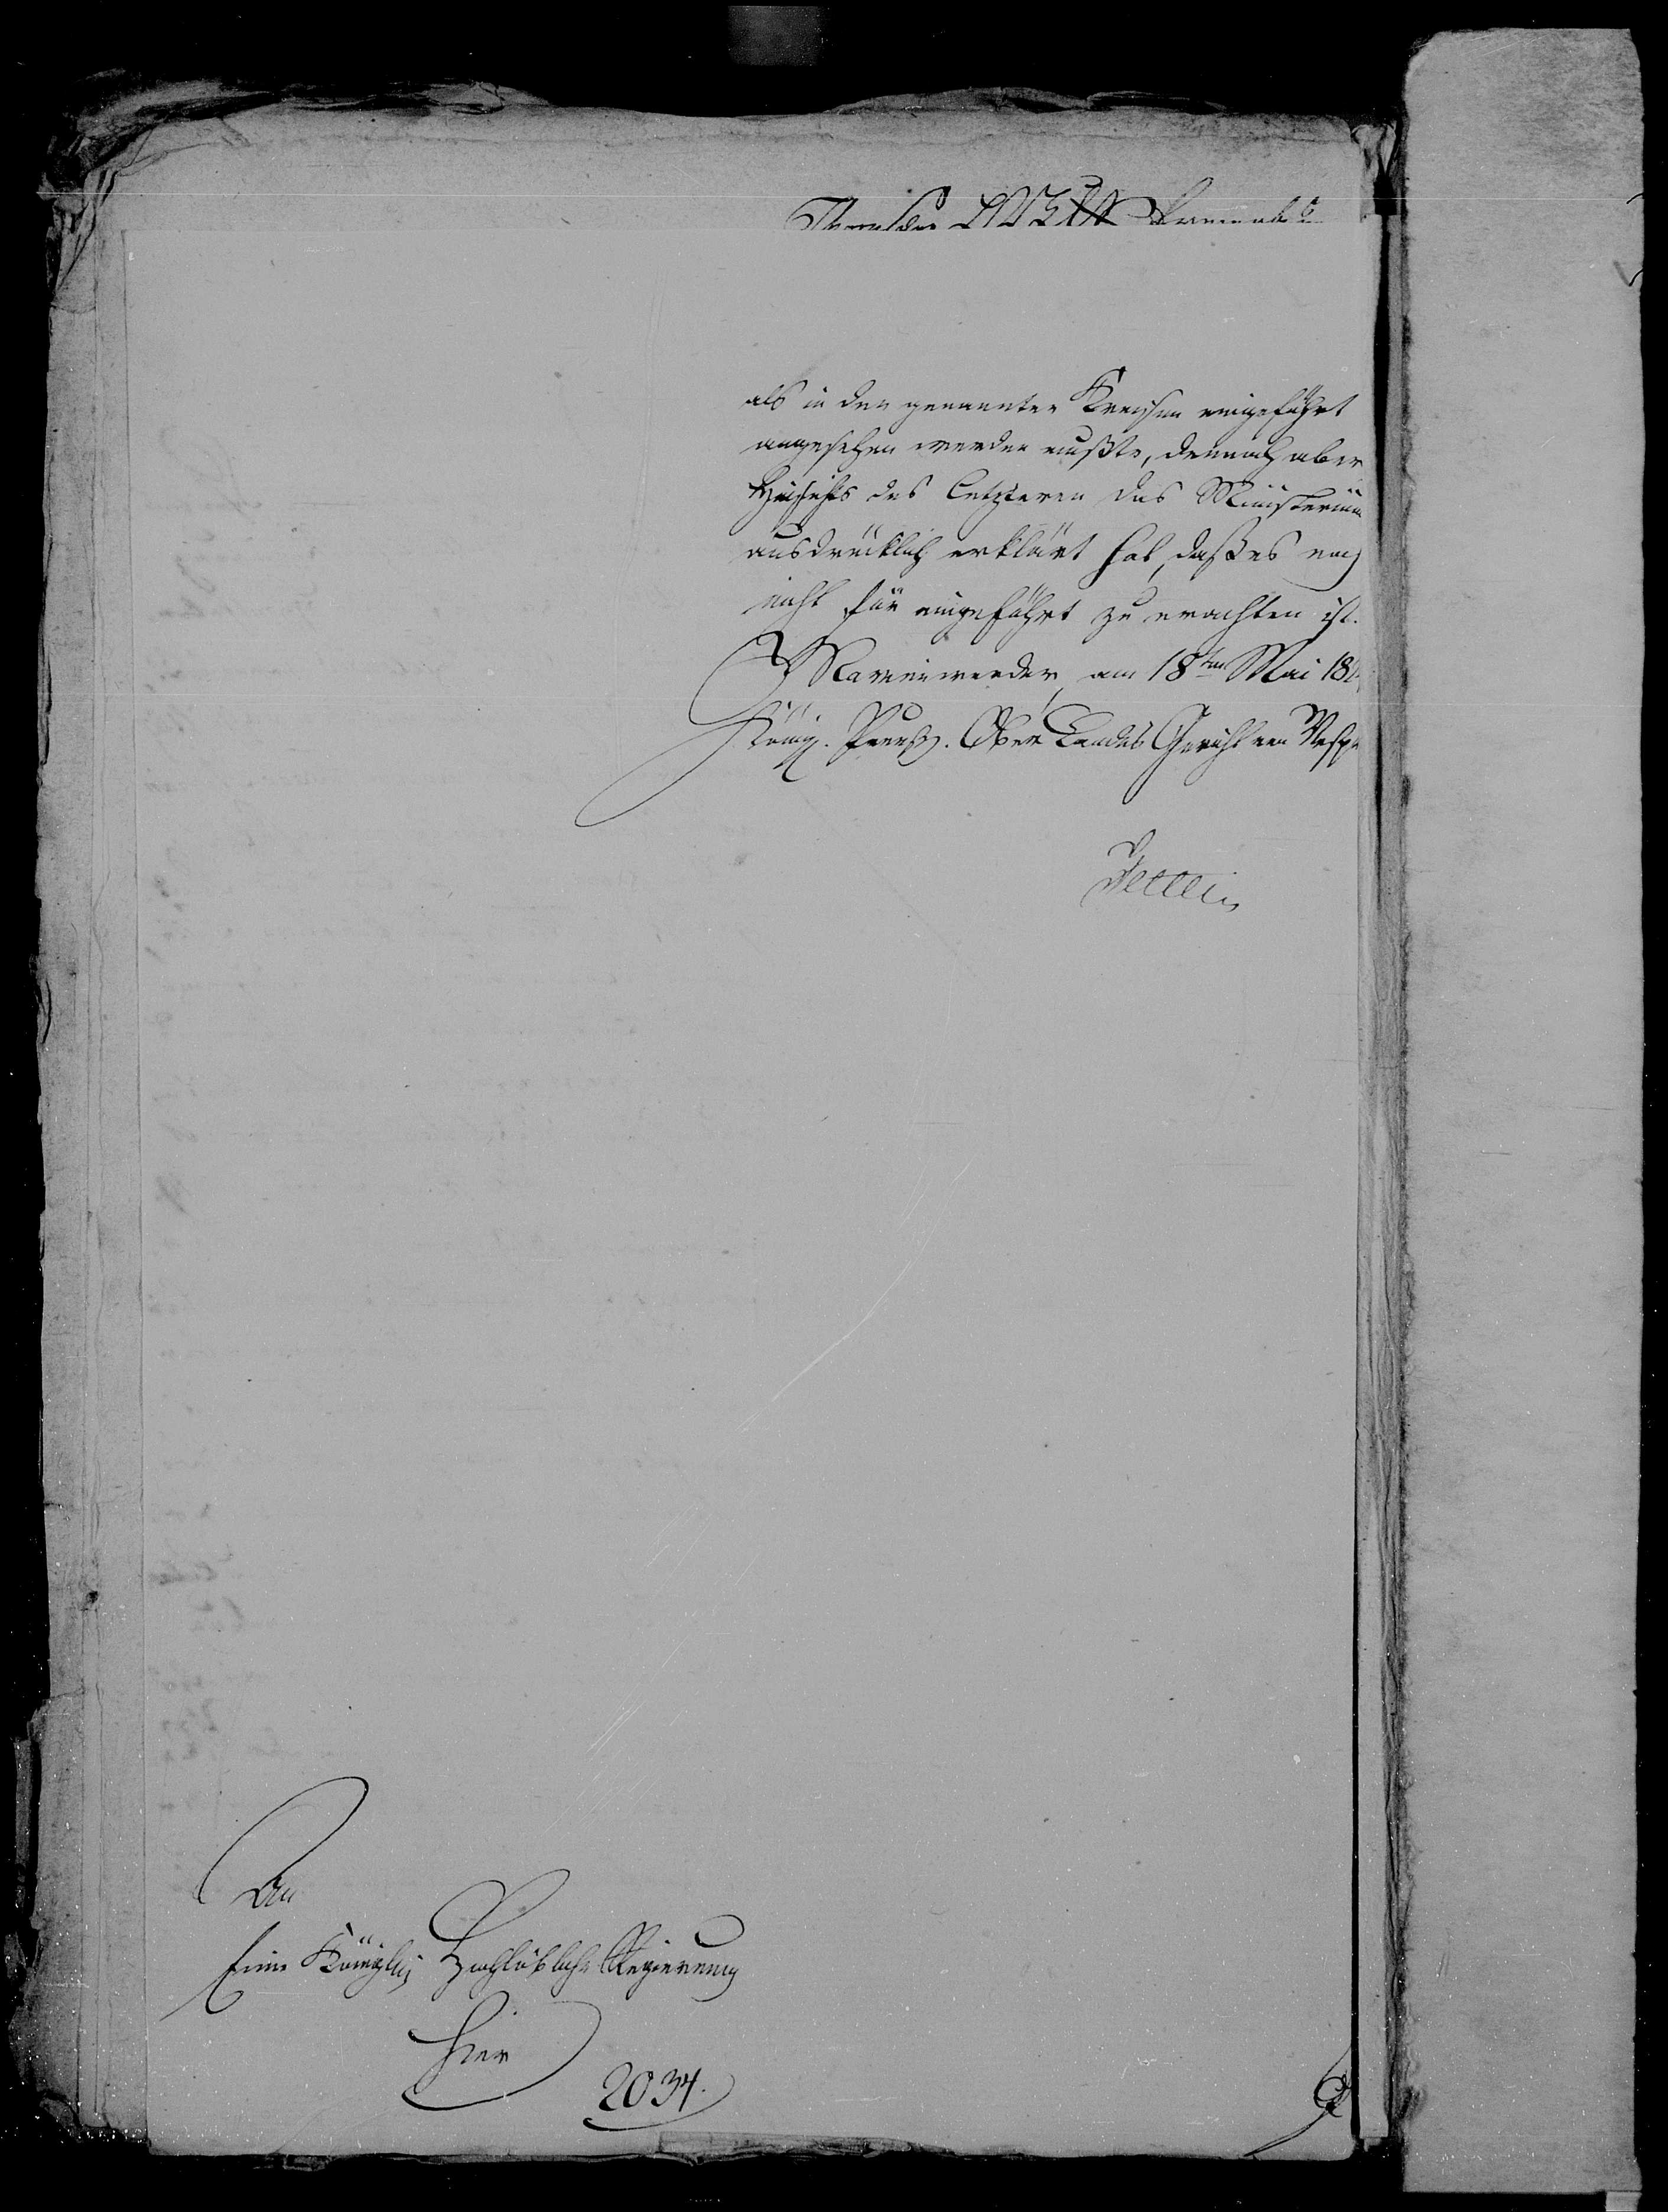 als in den genannten Kreysen eingeführt
angesehen werden mußte, dennoch aber
Hinsichts des letzteren das Ministerium
ausdrücklich erklärt hat, daß es noch
nicht für eingeführt zu erachten ist.
Marienwerder, am 18ten Mai 18
Königl. Preuß. Ober Landes Gericht von Westpr
An
Eine Königliche Hochlöbliche Regierung
hier
2034.